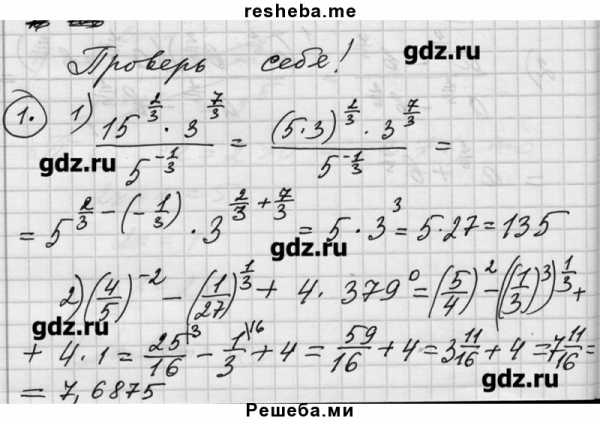 resheba.me
Проверь себя!
gdz.ru
1. 1) 15^(2/3) · 3^(7/3) / 5^(-1/3) = (5·3)^(2/3) · 3^(7/3) / 5^(-1/3) =
gdz.ru
gdz.ru
= 5^(2/3 - (-1/3)) · 3^(2/3 + 7/3) = 5 · 3^3 = 5·27 = 135
gdz.ru
2) (4/5)^(-2) - (1/27)^(1/3) + 4 · 379^0 = (5/4)^2 - ((1/3)^3)^(1/3) +
gdz.ru
+ 4·1 = 25/16 \3 - 1/3 \16 + 4 = 59/16 + 4 = 3 11/16 + 4 = 7 11/16 =
gdz.ru
= 7,6875
Решеба.ми